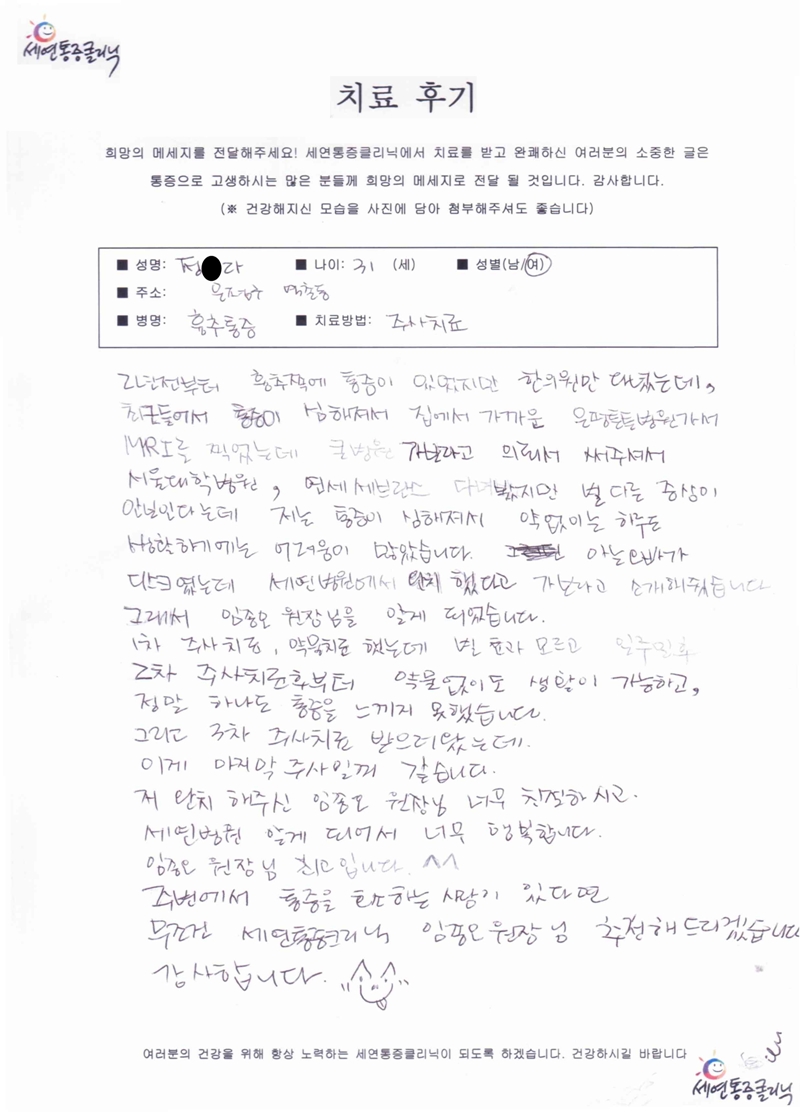 세연통증클리닉
치료 후기
희망의 메세지를 전달해주세요! 세연통증클리닉에서 치료를 받고 완쾌하신 여러분의 소중한 글은
통증으로 고생하시는 많은 분들께 희망의 메세지로 전달 될 것입니다. 감사합니다.
(※ 건강해지신 모습을 사진에 담아 첨부해주셔도 좋습니다)
■ 성명: 정 다 ■ 나이: 31 (세) ■ 성별(남/여)
■ 주소: 은평구 역촌동
■ 병명: 흉추통증 ■ 치료방법: 주사치료
2년전부터 흉추쪽에 통증이 있었지만 한의원만 다녔는데,
최근들어서 통증이 심해져서 집에서 가까운 은평튼튼병원가서
MRI를 찍었는데 큰병원 가보라고 의뢰서 써주셔서
서울대학병원, 연세세브란스 다녀봤지만 별 다른 증상이
안보인다는데 저는 통증이 심해져서 약없이는 하루도
생활하기에는 어려움이 많았습니다. 아는오빠가
디스크였는데 세연병원에서 완치 했다고 가보라고 소개해줬습니다
그래서 임종오 원장님을 알게 되었습니다.
1차 주사치료, 약물치료 했는데 별 효과 모르고 일주일후
2차 주사치료후부터 약물없이도 생활이 가능하고,
정말 하나도 통증을 느끼지 못했습니다.
그리고 3차 주사치료 받으러왔는데.
이게 마지막 주사일꺼 같습니다.
저 완치 해주신 임종오 원장님 너무 친절하시고.
세연병원 알게 되어서 너무 행복합니다.
임종오 원장님 최고입니다. ^^
주변에서 통증을 호소하는 사람이 있다면
무조건 세연통증클리닉 임종오원장님 추천해드리겠습니다
감사합니다.
여러분의 건강을 위해 항상 노력하는 세연통증클리닉이 되도록 하겠습니다. 건강하시길 바랍니다
세연통증클리닉